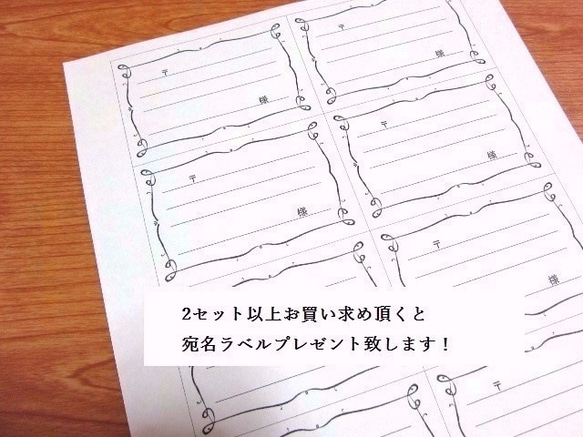 〒
様
〒
様
〒
様
〒
様
〒
様
〒
2セット以上お買い求め頂くと
宛名ラベルプレゼント致します！